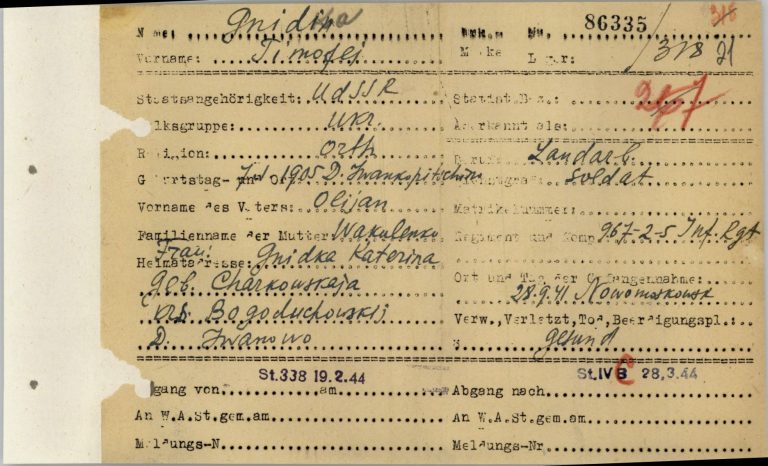 Name: Gnidka Erk.m Nr. 86335/ 318
Vorname: Timofej Marke Lager: 318 21
Staatsangehörigkeit: UdSSR Statist.Bez.: 267
Volksgruppe: Ukr. Anerkannt als:
Religion: Orth Beruf: Landarb.
Geburtstag- und Ort 1905 D. Dienstgrad: Soldat
Vorname des Vaters: Olijan Matrikelnummer:
Familienname der Mutter: Wakulenko Regiment und Komp 967-2-5 Inf. Rgt
Frau:
Heimatadresse: Gnidka Katerina
Geb. Charkowskaja Ort und Tag der Gefangennahme:
28.9.41 Nowomoskowsk
Bogoduchowskij Verw.,Verletzt,Tod,Beerdigungspl.:
D. Iwanowo gesund
St.338 19.2.44 St.IVB C 28.3.44
Zugang von am Abgang nach
An W.A.St.gem.am An W.A.St.gem.am
Meldungs-N Meldungs-Nr